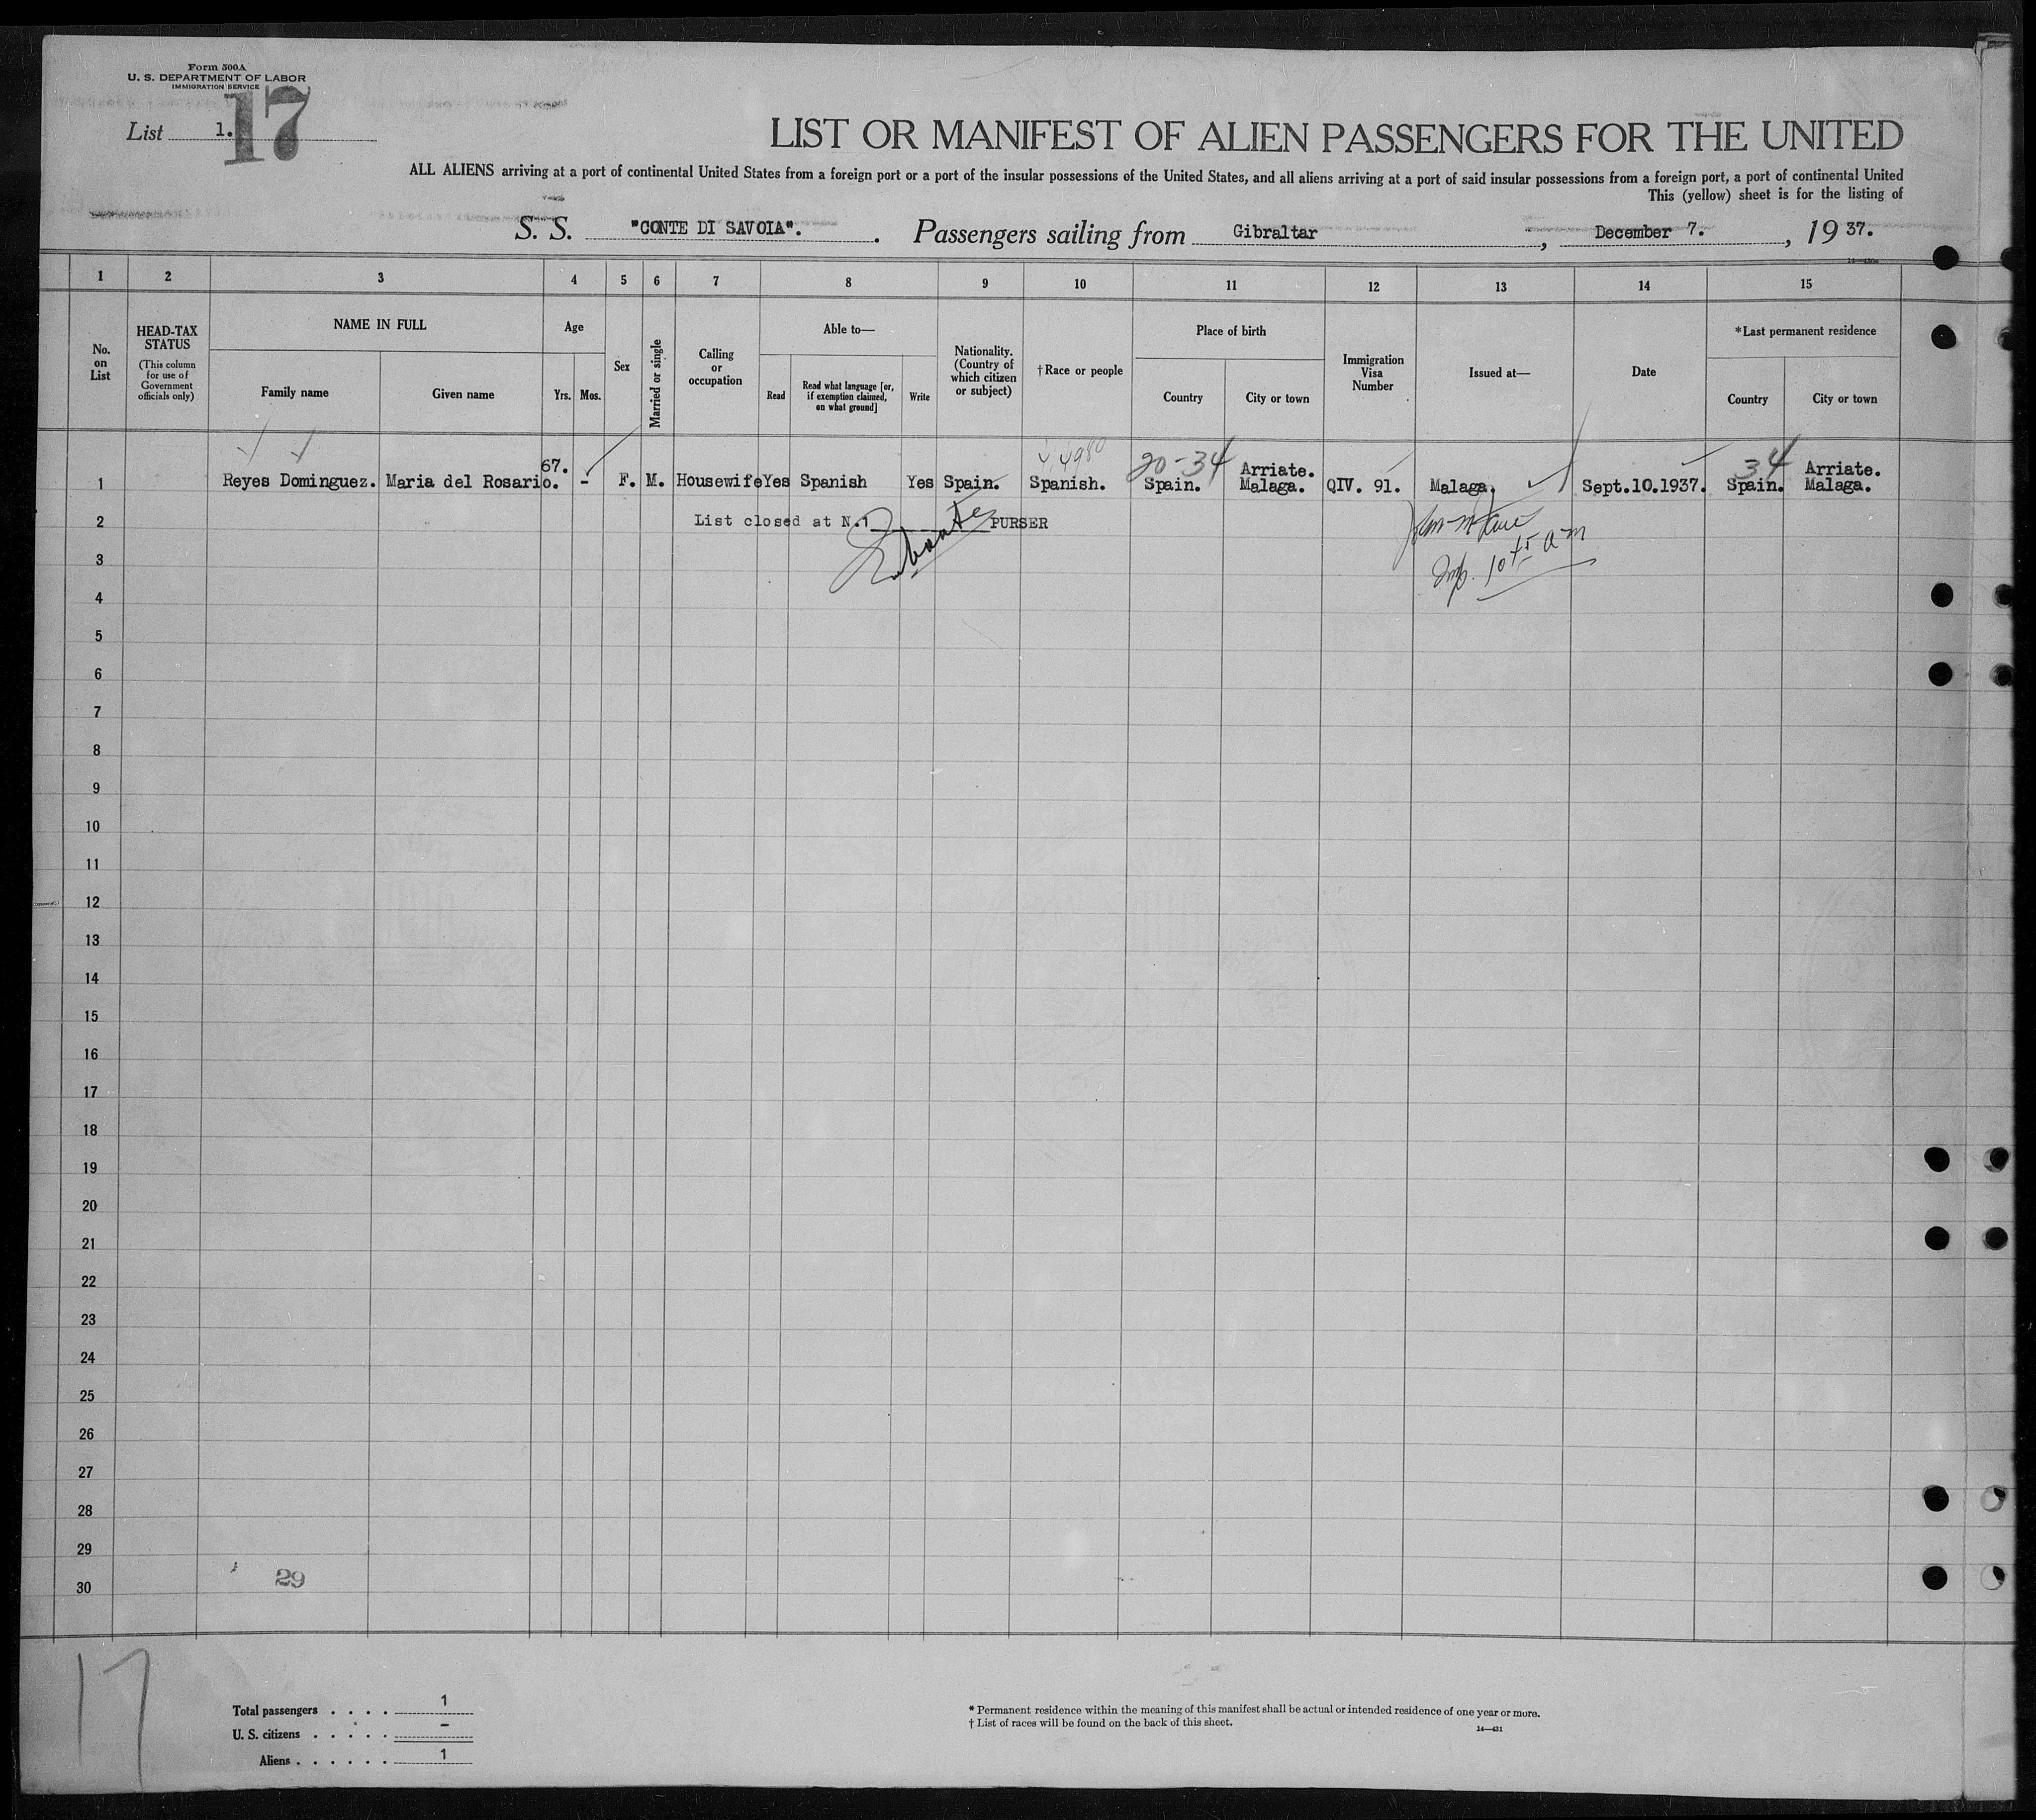 Form 500A
U. S. DEPARTMENT OF LABOR
IMMIGRATION SERVICE
List 1. 17
LIST OR MANIFEST OF ALIEN PASSENGERS FOR THE UNITED
ALL ALIENS arriving at a port of continental United States from a foreign port or a port of the insular possessions of the United States, and all aliens arriving at a port of said insular possessions from a foreign port, a port of continental United
This (yellow) sheet is for the listing of
S. S. "CONTE DI SAVOIA". Passengers sailing from Gibraltar, December 7., 1937.
1 2 3 4 5 6 7 8 9 10 11 12 13 14 15
No. on List
HEAD-TAX STATUS
(This column for use of Government officials only)
NAME IN FULL
Family name
Given name
Age
Yrs. Mos.
Sex
Married or single
Calling or occupation
Able to—
Read
Read what language [or, if exemption claimed, on what ground]
Write
Nationality. (Country of which citizen or subject)
†Race or people
Place of birth
Country
City or town
Immigration Visa Number
Issued at—
Date
*Last permanent residence
Country
City or town
1 Reyes Dominguez. Maria del Rosario. 67. - F. M. Housewife Yes Spanish Yes Spain. Spanish. 20-34 Spain. Arriate. Malaga. QIV. 91. Malaga. Sept.10.1937. 34 Spain. Arriate. Malaga.
2 List closed at N.1 PURSER
3
4
5
6
7
8
9
10
11
12
13
14
15
16
17
18
19
20
21
22
23
24
25
26
27
28
29
30
29
17
Total passengers . . . . 1
U. S. citizens . . . . . -
Aliens . . . . . . 1
* Permanent residence within the meaning of this manifest shall be actual or intended residence of one year or more.
† List of races will be found on the back of this sheet.
14—431